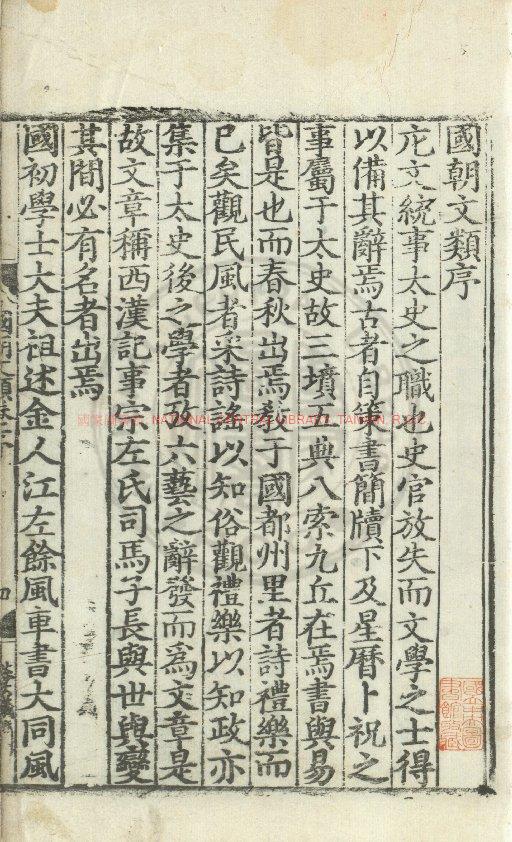 國朝文類序
庀文統事太史之職也史官放失而文學之士得
以備其辭焉古者自策書簡牘下及星曆卜祝之
事屬于太史故三墳五典八索九丘在焉書與易
皆是也而春秋出焉敎于國都州里者詩禮樂而
已矣觀民風者采詩謠以知俗觀禮樂以知政亦
集于太史後之學者攷六藝之辭發而為文章是
故文章稱西漢記事宗左氏司馬子長與世與變
其間必有名者出焉
國初學士大夫祖述金人江左餘風車書大同風
NATIONAL CENTRAL LIBRARY, TAIWAN, R.O.C.